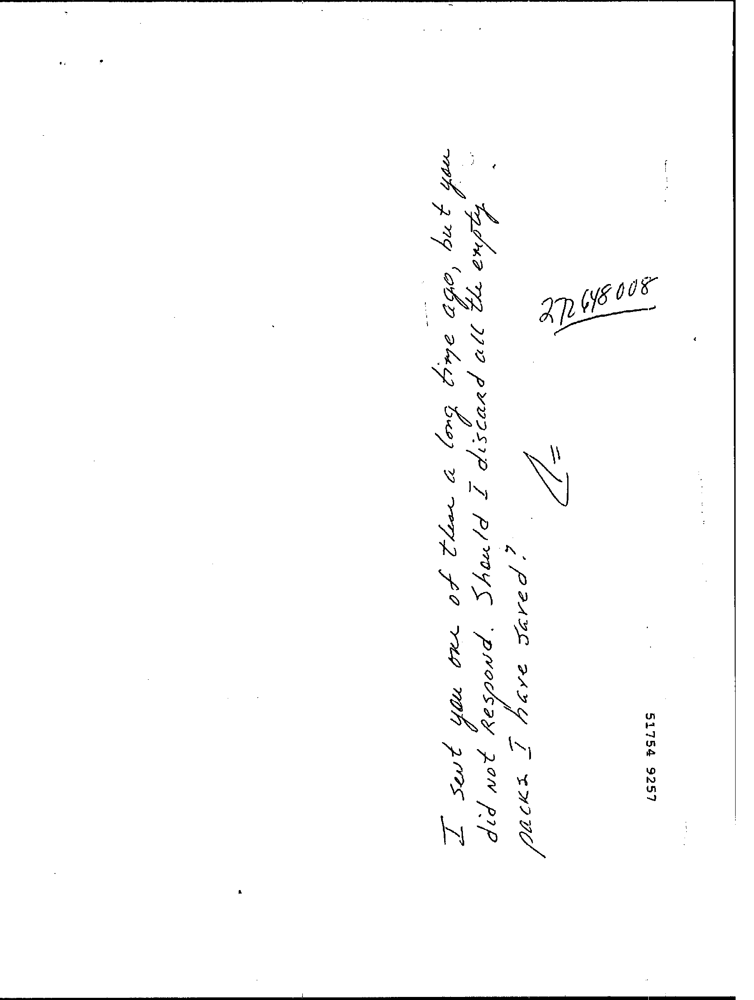 I sent you one of these a long time ago, but you
did not respond. Should I discard all the empty
packs I have saved?
272648008
51754 9257